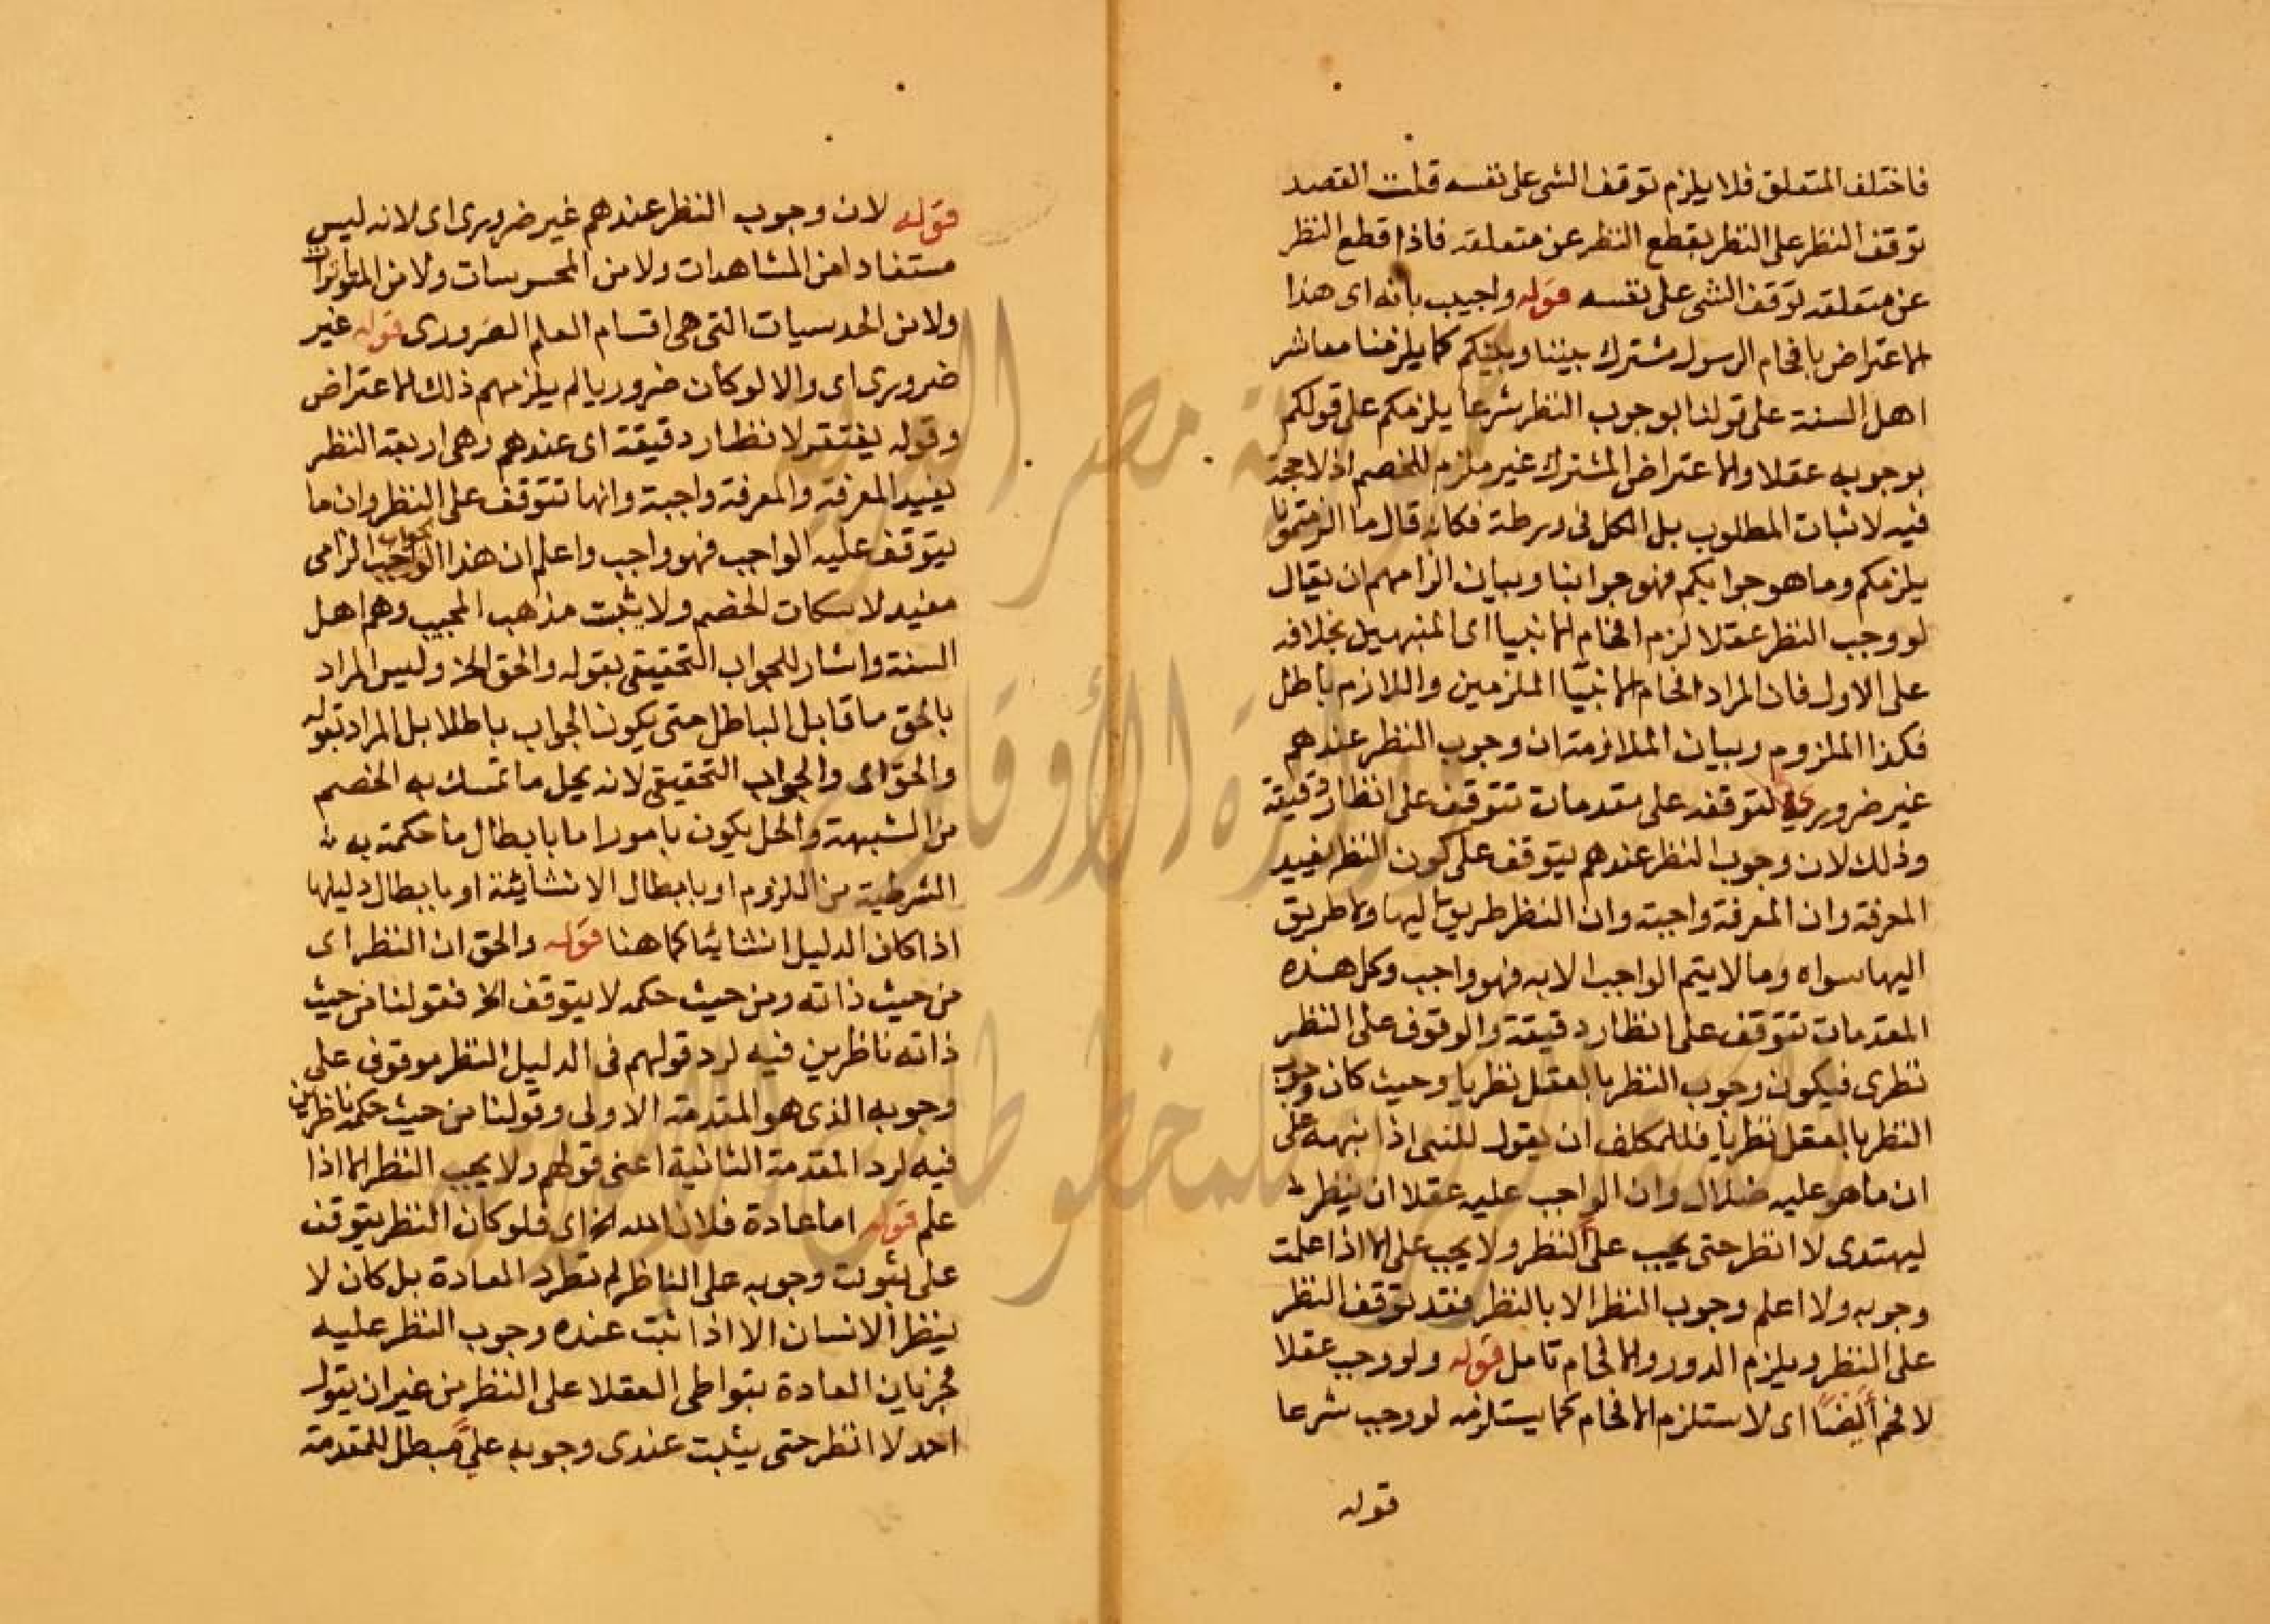 فاختلف المتعلق فلا يلزم توقف الشى على نفسه قلت القصد
توقف النظر على النظر بقطع النظر عن متعلقه فاذا قطع النظر
عن متعلقه توقف الشى على نفسه قوله واجيب بانه اى هذا
الاعتراض بافحام الرسول مشترك بيننا وبينكم كما يلزمنا معاشر
اهل السنة على قولنا بوجوب النظر شرعا يلزمكم على قولكم
بوجوبه عقلا والاعتراض المشترك غير ملزم للخصم اذ لا حجة
فيه لاثبات المطلوب بل الكل فى ورطة فكانه قال ما الزمتمونا
يلزمكم وما هو جوابكم فهو جوابنا وبيان الزامهم ان يقال
لو وجب النظر عقلا لزم افحام الانبيا اى المنبهين بخلافه
على الاول فان المراد افحام الانبيا الملزمين واللازم باطل
فكذا الملزوم وبيان الملازمة ان وجوب النظر عندهم
غير ضرورى لتوقفه على مقدمات تتوقف على انظار دقيقة
وذلك لان وجوب النظر عندهم يتوقف على كون النظر يفيد
المعرفة وان المعرفة واجبة وان النظر طريق اليها ولا طريق
اليها سواه وما لا يتم الواجب الا به فهو واجب وكل هذه
المقدمات تتوقف على انظار دقيقة والوقوف على النظر
نظرى فيكون وجوب النظر بالعقل نظريا وحيث كان وجوب
النظر بالعقل نظريا فللمكلف ان يقول للنبى اذا نبهه على
ان ما هو عليه ضلال وان الواجب عليه عقلا ان ينظر
ليهتدى لا انظر حتى يجب علىّ النظر ولا يجب على الا اذا علمت
وجوبه ولا اعلم وجوب النظر الا بالنظر فقد توقف النظر
على النظر ويلزم الدور والافحام تامل قوله ولو وجب عقلا
لافحم أيضًا اى لاستلزم الافحام كما يستلزمه لو وجب شرعا
قوله
قوله لان وجوب النظر عندهم غير ضرورى اى لانه ليس
مستفادا من المشاهدات ولا من المحسوسات ولا من المتواترات
ولا من الحدسيات التى هى اقسام العلم الضرورى قوله غير
ضرورى اى والا لو كان ضروريا لم يلزمهم ذلك الاعتراض
وقوله يفتقر لانظار دقيقة اى عندهم وهى اربعة النظر
يفيد المعرفة والمعرفة واجبة وانها تتوقف على النظر وان ما
يتوقف عليه الواجب فهو واجب واعلم ان هذا الجواب الزامى
مفيد لاسكات الخصم ولا يثبت مذهب المجيب وهم اهل
السنة واشار للجواب التحقيقى بقوله والحق الخ وليس المراد
بالحق ما قابل الباطل حتى يكون الجواب باطلا بل المراد بقوله
والحق اى والجواب التحقيقى لانه يحل ما تمسك به الخصم
من الشبهة والحل يكون بامور اما بابطال ما حكمة به
الشرطية من اللزوم او بابطال الانشائية او بابطال دليلها
اذا كان الدليل انشائيا كما هنا قوله والحق ان النظر اى
من حيث ذاته ومن حيث حكمه لا يتوقف الخ فقولنا من حيث
ذاته ناظرين فيه لرد قولهم فى الدليل النظر موقوف على
وجوبه الذى هو المقدمة الاولى وقولنا من حيث حكمه ناظرين
فيه لرد المقدمة الثانية اعنى قولهم ولا يجب النظر الا اذا
علم قوله اما عادة فلان الله الخ اى فلو كان النظر يتوقف
على ثبوت وجوبه على الناظر لم تطرد العادة بل كان لا
ينظر الانسان الا اذا ثبت عنده وجوب النظر عليه
فجريان العادة بتواطى العقلا على النظر من غير ان يقول
احد لا انظر حتى يثبت عندى وجوبه علىّ مبطل للمقدمة